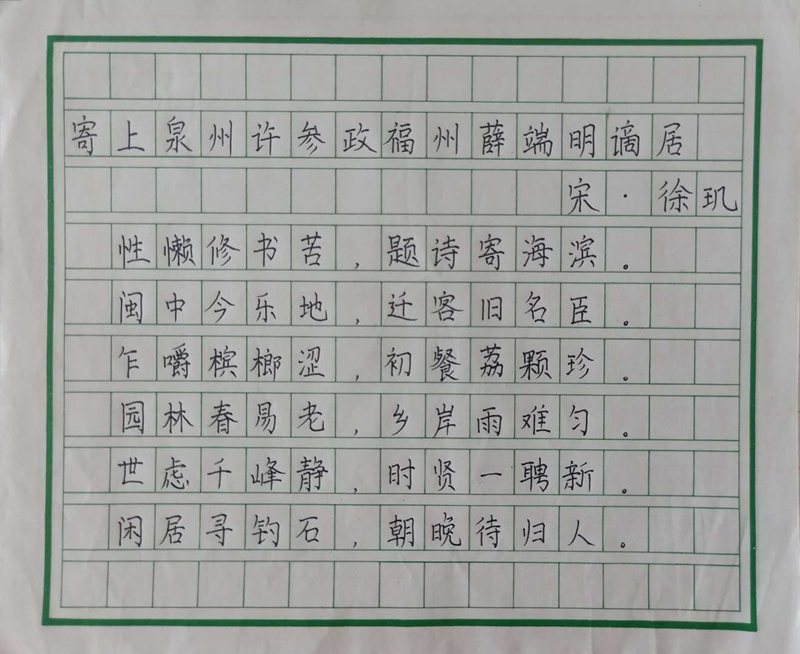 寄上泉州许参政福州薛端明谪居
宋·徐玑
性懒修书苦，题诗寄海滨。
闽中今乐地，迁客旧名臣。
乍嚼槟榔涩，初餐荔颗珍。
园林春易老，乡岸雨难匀。
世虑千峰静，时贤一聘新。
闲居寻钓石，朝晚待归人。